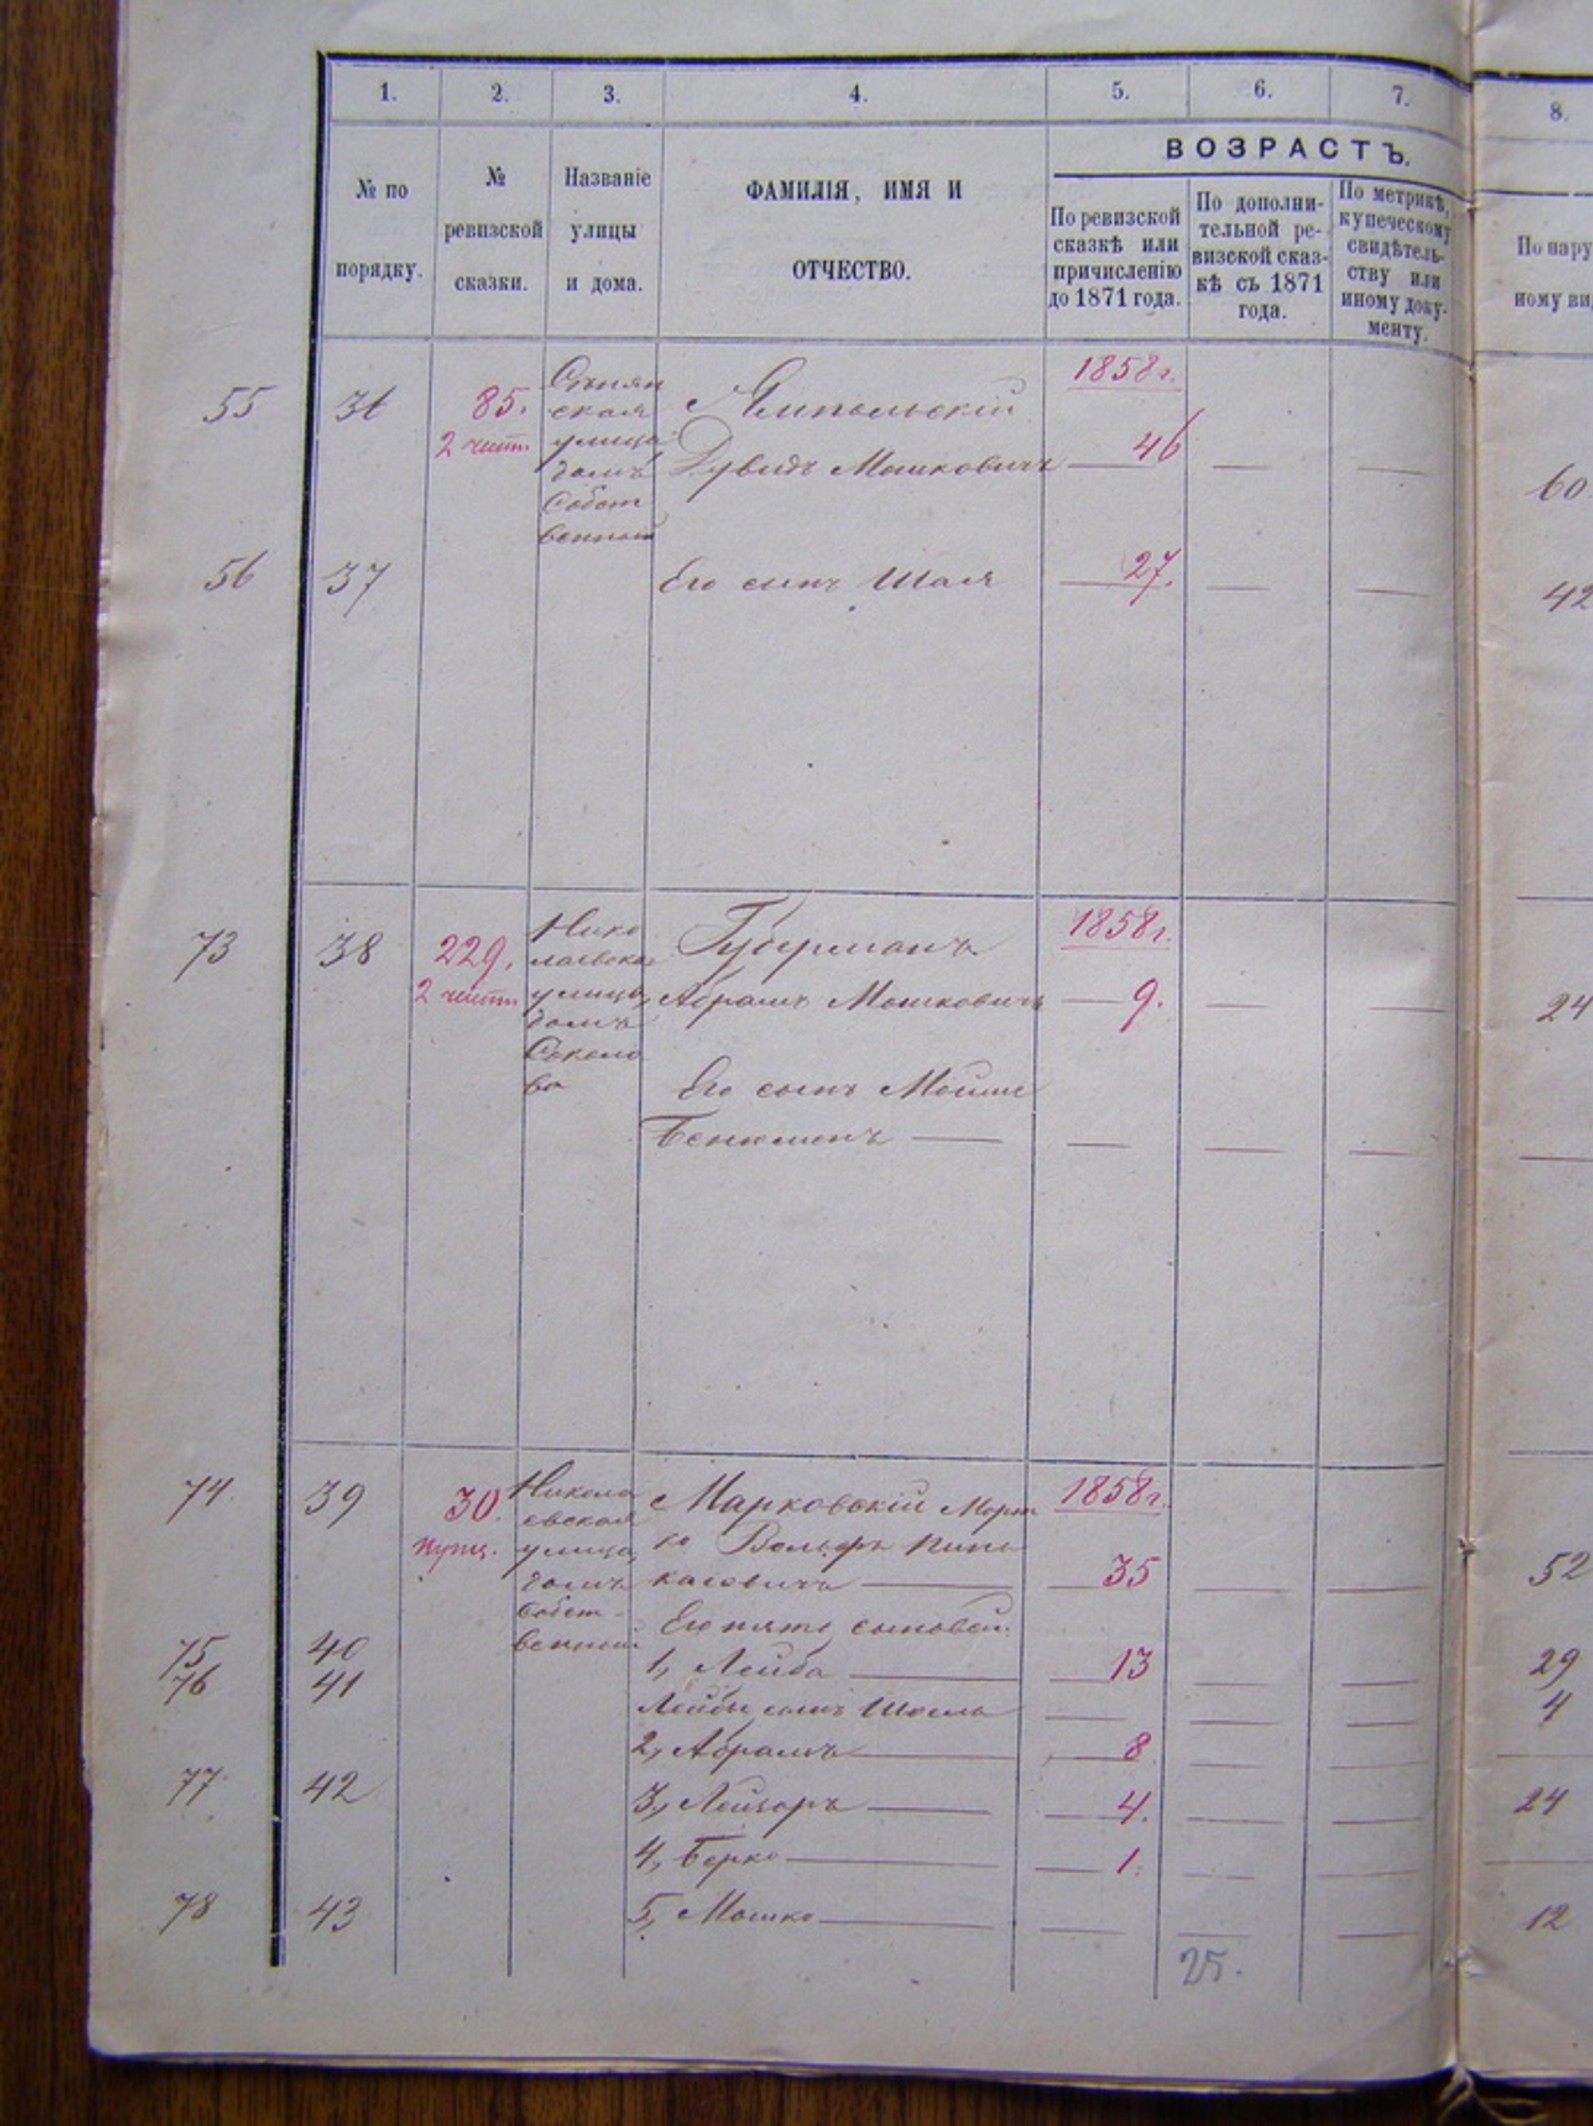 1. 2. 3. 4. 5. 6. 7. 8.
ВОЗРАСТЪ.
№ по
порядку.
№
ревизской
сказки.
Названіе
улицы
и дома.
ФАМИЛІЯ, ИМЯ И
ОТЧЕСТВО.
По ревизской
сказкѣ или
причисленію
до 1871 года.
По дополни-
тельной ре-
визской сказ-
кѣ съ 1871
года.
По метрикѣ,
купеческому
свидѣтель-
ству или
иному доку-
менту.
По нару
ному ви
55 36 85.
2 част.
ская
улица,
домъ
Собст
венный
Ямпольскій
Дувидъ Мошковичъ
1858 г.
46
60
56 37 Его сынъ Шая 27. 42
73 38 229.
2 част.
Нико
лаевская
улица,
домъ
Соколо
ва
Губерманъ
Абрамъ Мошковичъ
1858 г.
9.
24
Его сынъ Мойше
Беняменъ
74 39 30.
купц.
Никола
евская
улица,
домъ
Собст-
венный
МарковскійМорт
ко Вольфъ Пинь
касовичъ
1858 г.
35
52
Его пять сыновей:
75 40 1, Лейба 13 29
76 41 Лейбы сынъ 4
2, Абрамъ 8
77 42 3, Лейзоръ 4. 24
4, Берко 1.
78 43 5, Мошко 12
25.